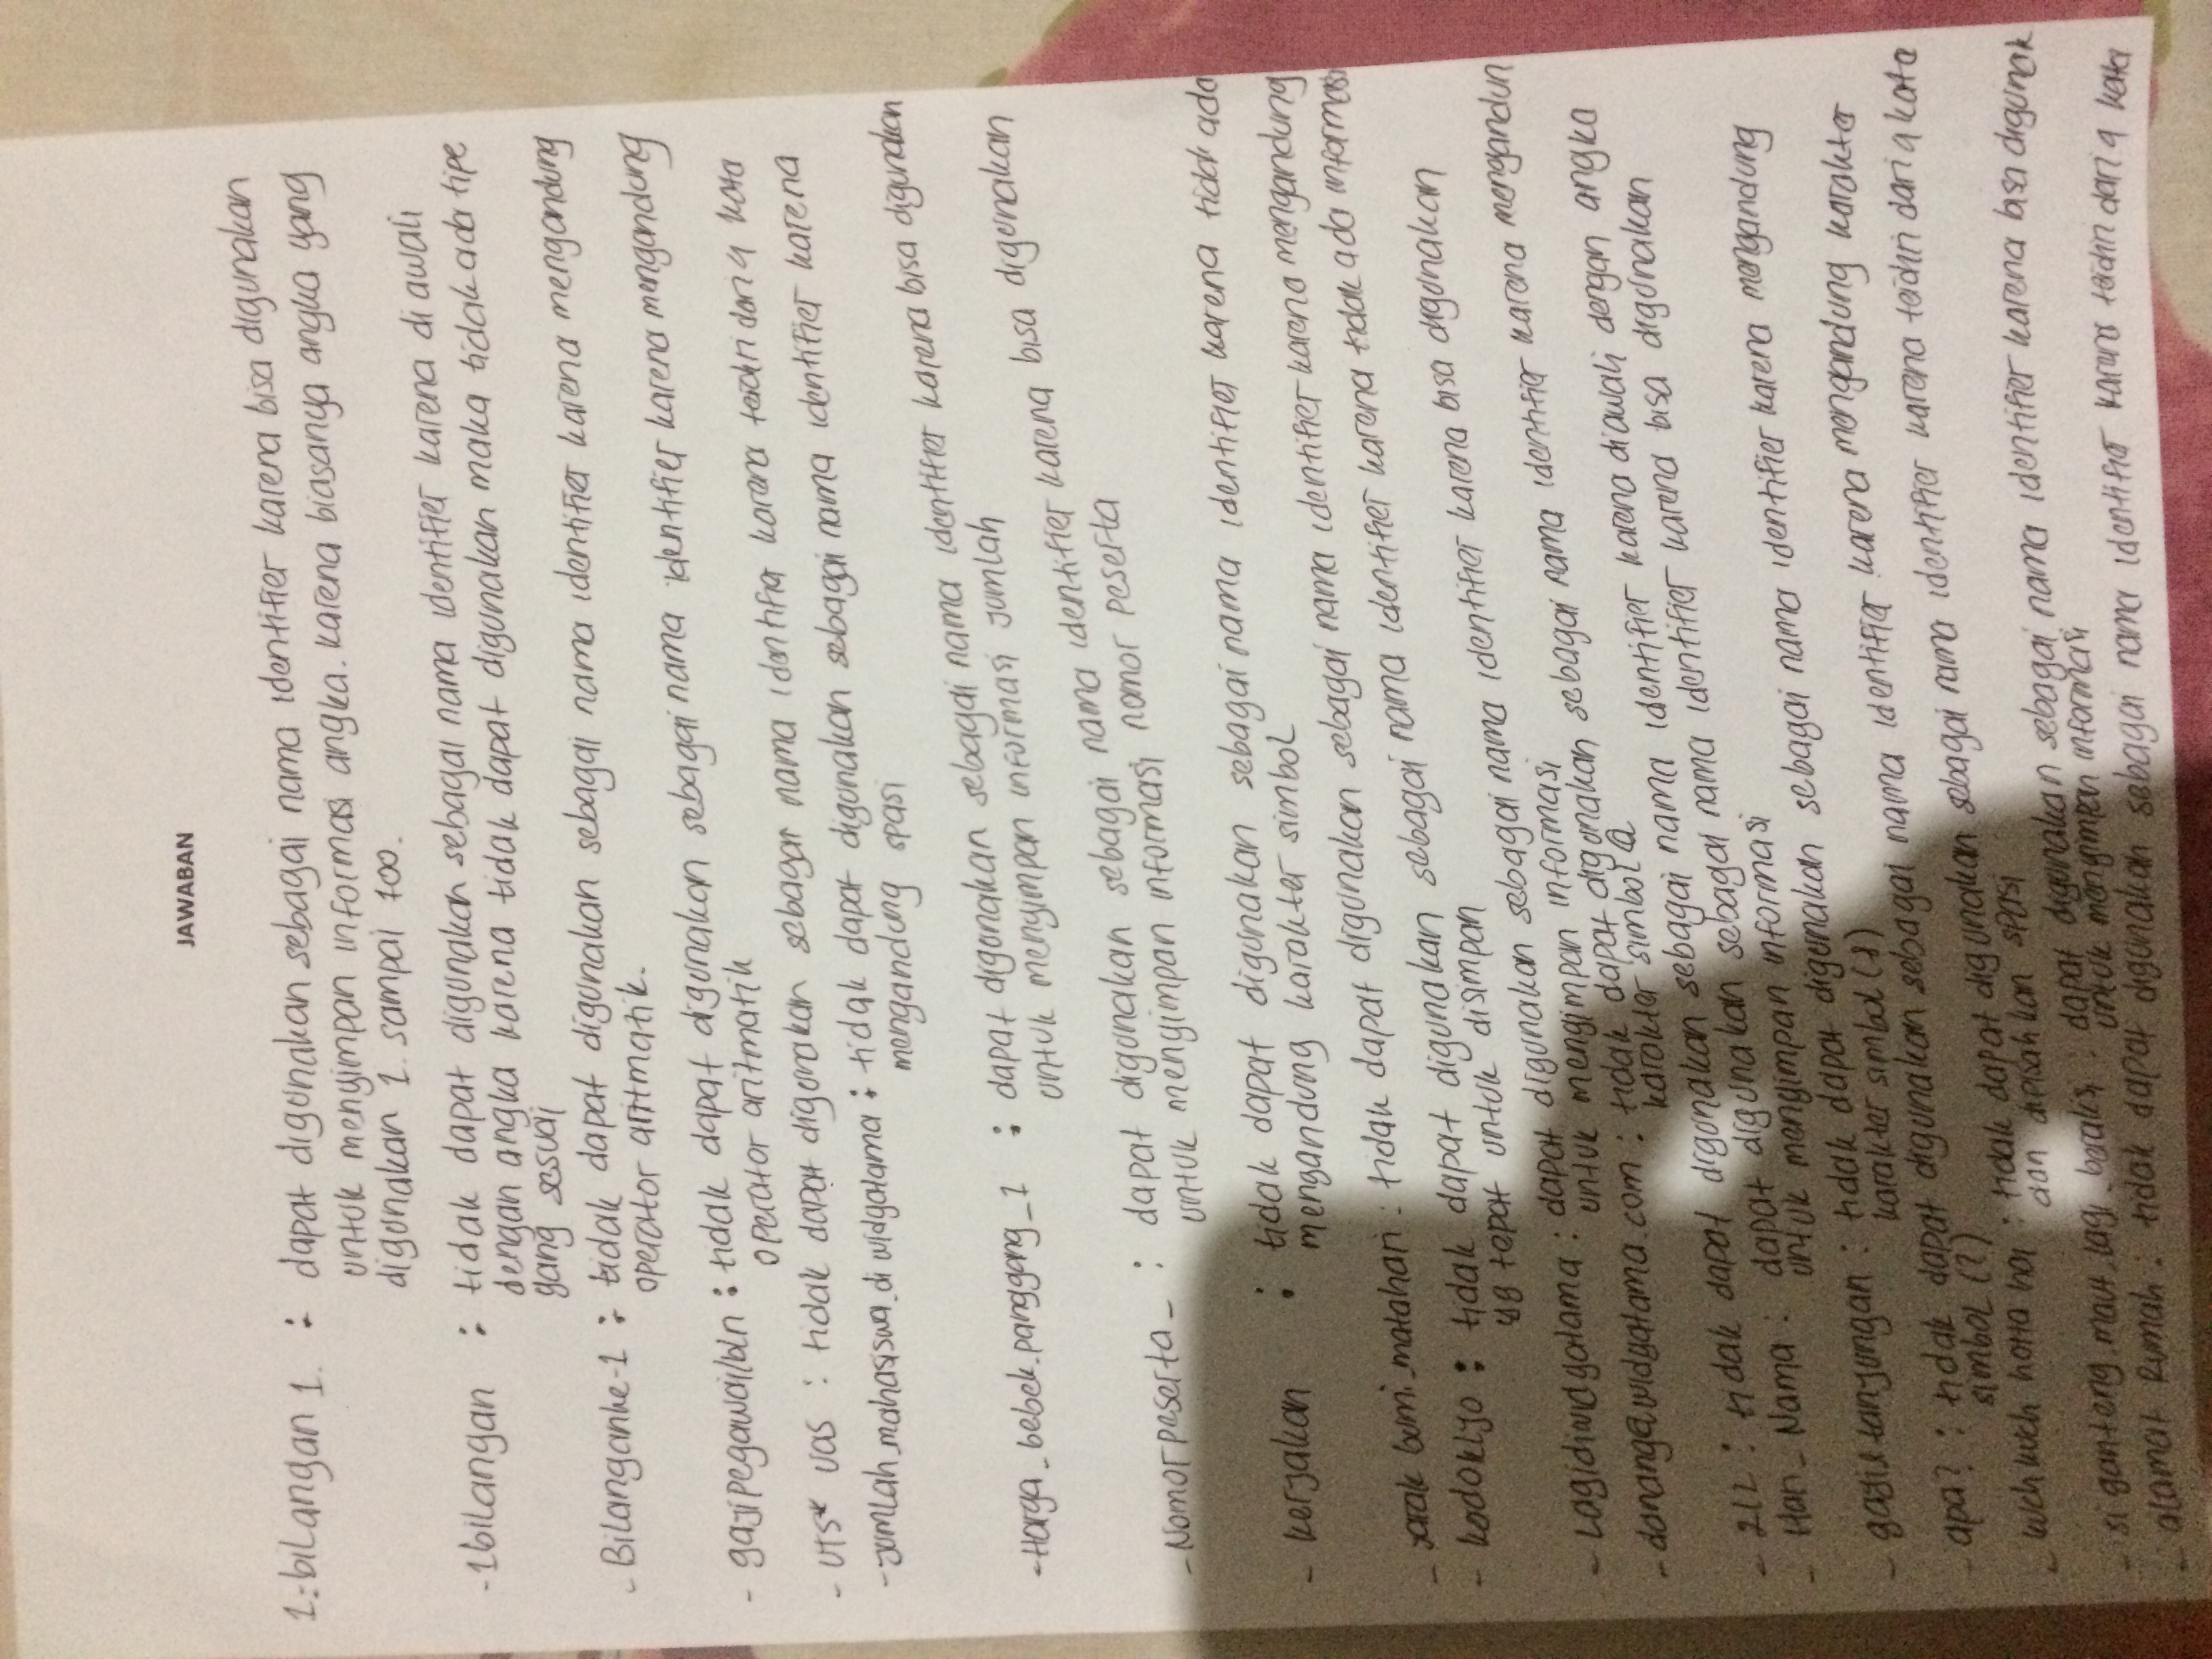 JAWABAN
1.-bilangan 1. : dapat digunakan sebagai nama identifier karena bisa digunakan
untuk menyimpan informasi angka. karena biasanya angka yang
digunakan 1. sampai 100.
- 1bilangan : tidak dapat digunakan sebagai nama identifier karena di awali
dengan angka karena tidak dapat digunakan maka tidak ada tipe
yang sesuai
- Bilanganke-1 : tidak dapat digunakan sebagai nama identifier karena mengandung
operator aritmatik.
- gajipegawai/bln : tidak dapat digunakan sebagai nama identifier karena mengandung
operator aritmatik
- UTS* UAS : tidak dapat digunakan sebagai nama identifier karena terdiri dari 4 kata
- jumlah_mahasiswa_di widyatama : tidak dapat digunakan sebagai nama identifier karena
mengandung spasi
- Harga_bebek_panggang_1 : dapat digunakan sebagai nama identifier karena bisa digunakan
untuk menyimpan informasi jumlah
- Nomorpeserta_ : dapat digunakan sebagai nama identifier karena bisa digunakan
untuk menyimpan informasi nomor peserta
- kerjakan : tidak dapat digunakan sebagai nama identifier karena tidak ada
mengandung karakter simbol
- jarak bumi_matahari : tidak dapat digunakan sebagai nama identifier karena mengandung
- kodokijo : tidak dapat digunakan sebagai nama identifier karena tidak ada informasi
yg tepat untuk disimpan
- Lagidiwidyatama : dapat digunakan sebagai nama identifier karena bisa digunakan
untuk mengimpan informasi
- danang@widyatama.com : tidak dapat digunakan sebagai nama identifier karena mengandun
karakter simbol @
- 212 : tidak dapat digunakan sebagai nama identifier karena diawali dengan angka
- Hari_Nama : dapat digunakan sebagai nama identifier karena bisa digunakan
untuk menyimpan informasi
- gaji&tanjungan : tidak dapat digunakan sebagai nama identifier karena mengandung
karakter simbol (&)
- apa? : tidak dapat digunakan sebagai nama identifier karena mengandung karakter
simbol (?)
- kuch kuch hotta hai : tidak dapat digunakan sebagai nama identifier karena terdiri dari 4 kata
dan dipisahkan spasi
- si ganteng_maut_lagi_beraksi : dapat digunakan sebagai nama identifier karena bisa digunak
untuk menyimpan informasi
- alamat Rumah : tidak dapat digunakan sebagai nama identifier karena terdiri dari 4 kata